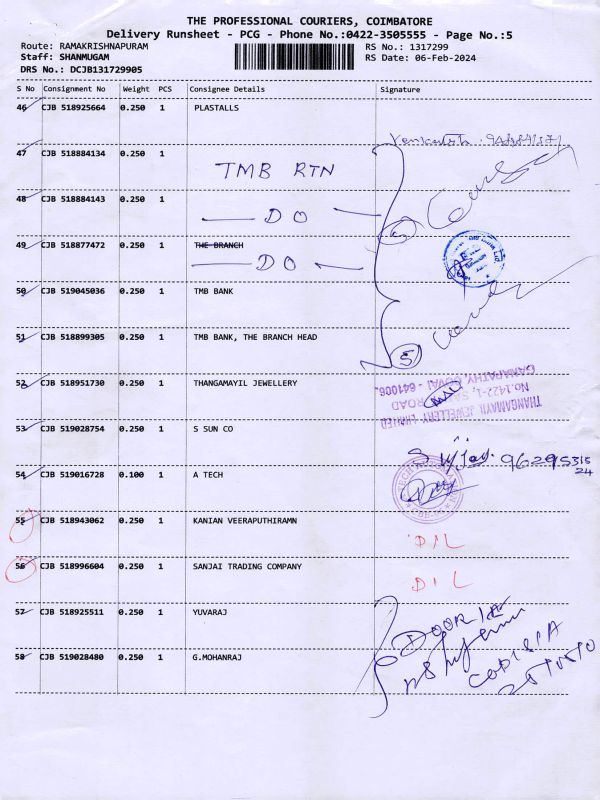 THE PROFESSIONAL COURIERS, COIMBATORE
Delivery Runsheet - PCG - Phone No.:0422-3505555 - Page No.:5
Route: RAMAKRISHNAPURAM
Staff: SHANMUGAM
DRS No.: DCJB131729905
RS No.: 1317299
RS Date: 06-Feb-2024
S No Consignment No Weight PCS Consignee Details Signature
46 CJB 518925664 0.250 1 PLASTALLS
47 CJB 518884134 0.250 1 TMB RTN
48 CJB 518884143 0.250 1 DO
49 CJB 518877472 0.250 1 THE BRANCH
DO
50 CJB 519045036 0.250 1 TMB BANK
51 CJB 518899305 0.250 1 TMB BANK, THE BRANCH HEAD
5
52 CJB 518951730 0.250 1 THANGAMAYIL JEWELLERY
THANGAMAYIL JEWELLERY LIMITED
No.1422-1, ROAD
GANAPATHY, COVAI - 641006.
53 CJB 519028754 0.250 1 S SUN CO
54 CJB 519016728 0.100 1 A TECH
55 CJB 518943062 0.250 1 KANIAN VEERAPUTHIRAMN
D/L
56 CJB 518996604 0.250 1 SANJAI TRADING COMPANY
D/L
57 CJB 518925511 0.250 1 YUVARAJ
58 CJB 519028480 0.250 1 G.MOHANRAJ
CODISIA